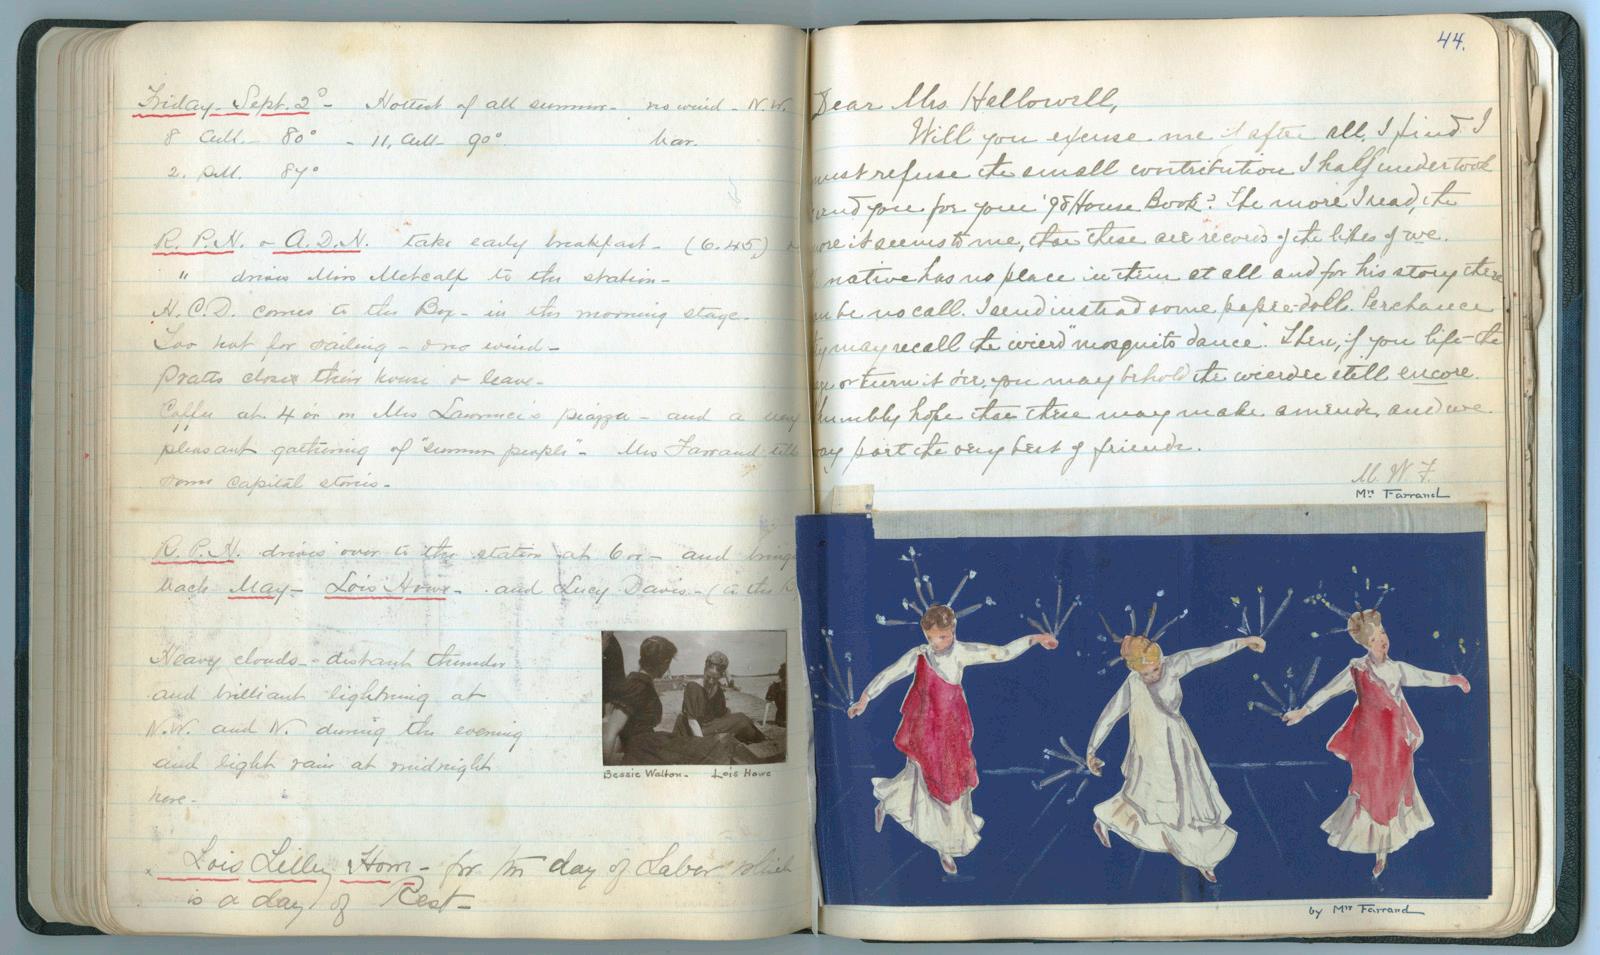 Friday - Sept. 2º - Hottest of all summer - no wind - N.W.
8 A.M. - 80° - 11, A.M. 90° bar.
2. P.M. 87°
R. P. N. & A. D. N. take early breakfast - (6.45)
" drives Miss Metcalf to the station -
H. C. D. comes to the Box - in the morning stage.
Too hot for sailing - & no wind -
Pratts close their house & leave.
Coffee at 4 on Mrs Lawrence's piazza - and a very
pleasant gathering of "summer people" - Mrs Farrand tells
some capital stories -
R. P. N. drives over to the station at 6 - and brings
back May - Lois Howe - and Lucy Davis - (to the
Heavy clouds - distant thunder
and brilliant lightning at
N.W. and N. during the evening
and light rain at midnight
here -
Bessie Walton - Lois Howe
x Lois Lilley Howe - for the day of Labor which
is a day of Rest -
44.
Dear Mrs Hallowell,
Will you excuse me if after all, I find I
must refuse the small contribution I half undertook
send you for your '98 House Book? The more I read, the
more it seems to me, that these are records of the likes of we.
native has no place in them at all and for his story there
be no call. I send instead some paper-dolls. Perchance
they may recall the weird "mosquito dance". Then, if you lift the
or turn it o'er, you may behold the weirder still encore.
humbly hope that these may make amends, and we
may part the very best of friends.
M. W. F.
Mrs Farrand
by Mrs Farrand